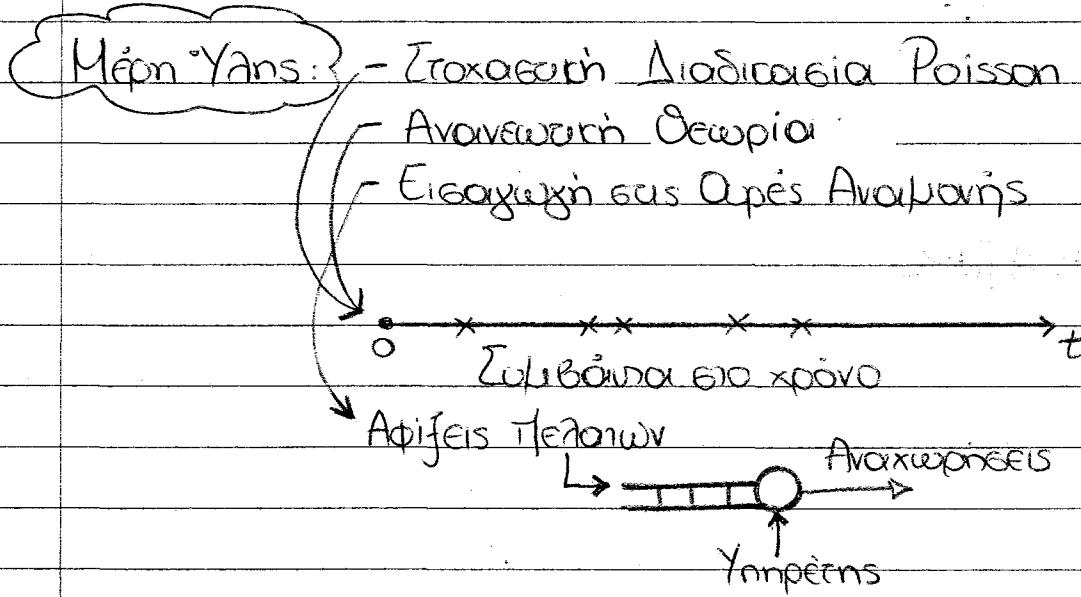 Μέρη Ύλης: - Στοχαστική Διαδικασία Poisson
- Ανανεωτική Θεωρία
- Εισαγωγή στις Ουρές Αναμονής
0 t
Συμβάντα στο χρόνο
Αφίξεις Πελατών
Αναχωρήσεις
Υπηρέτης